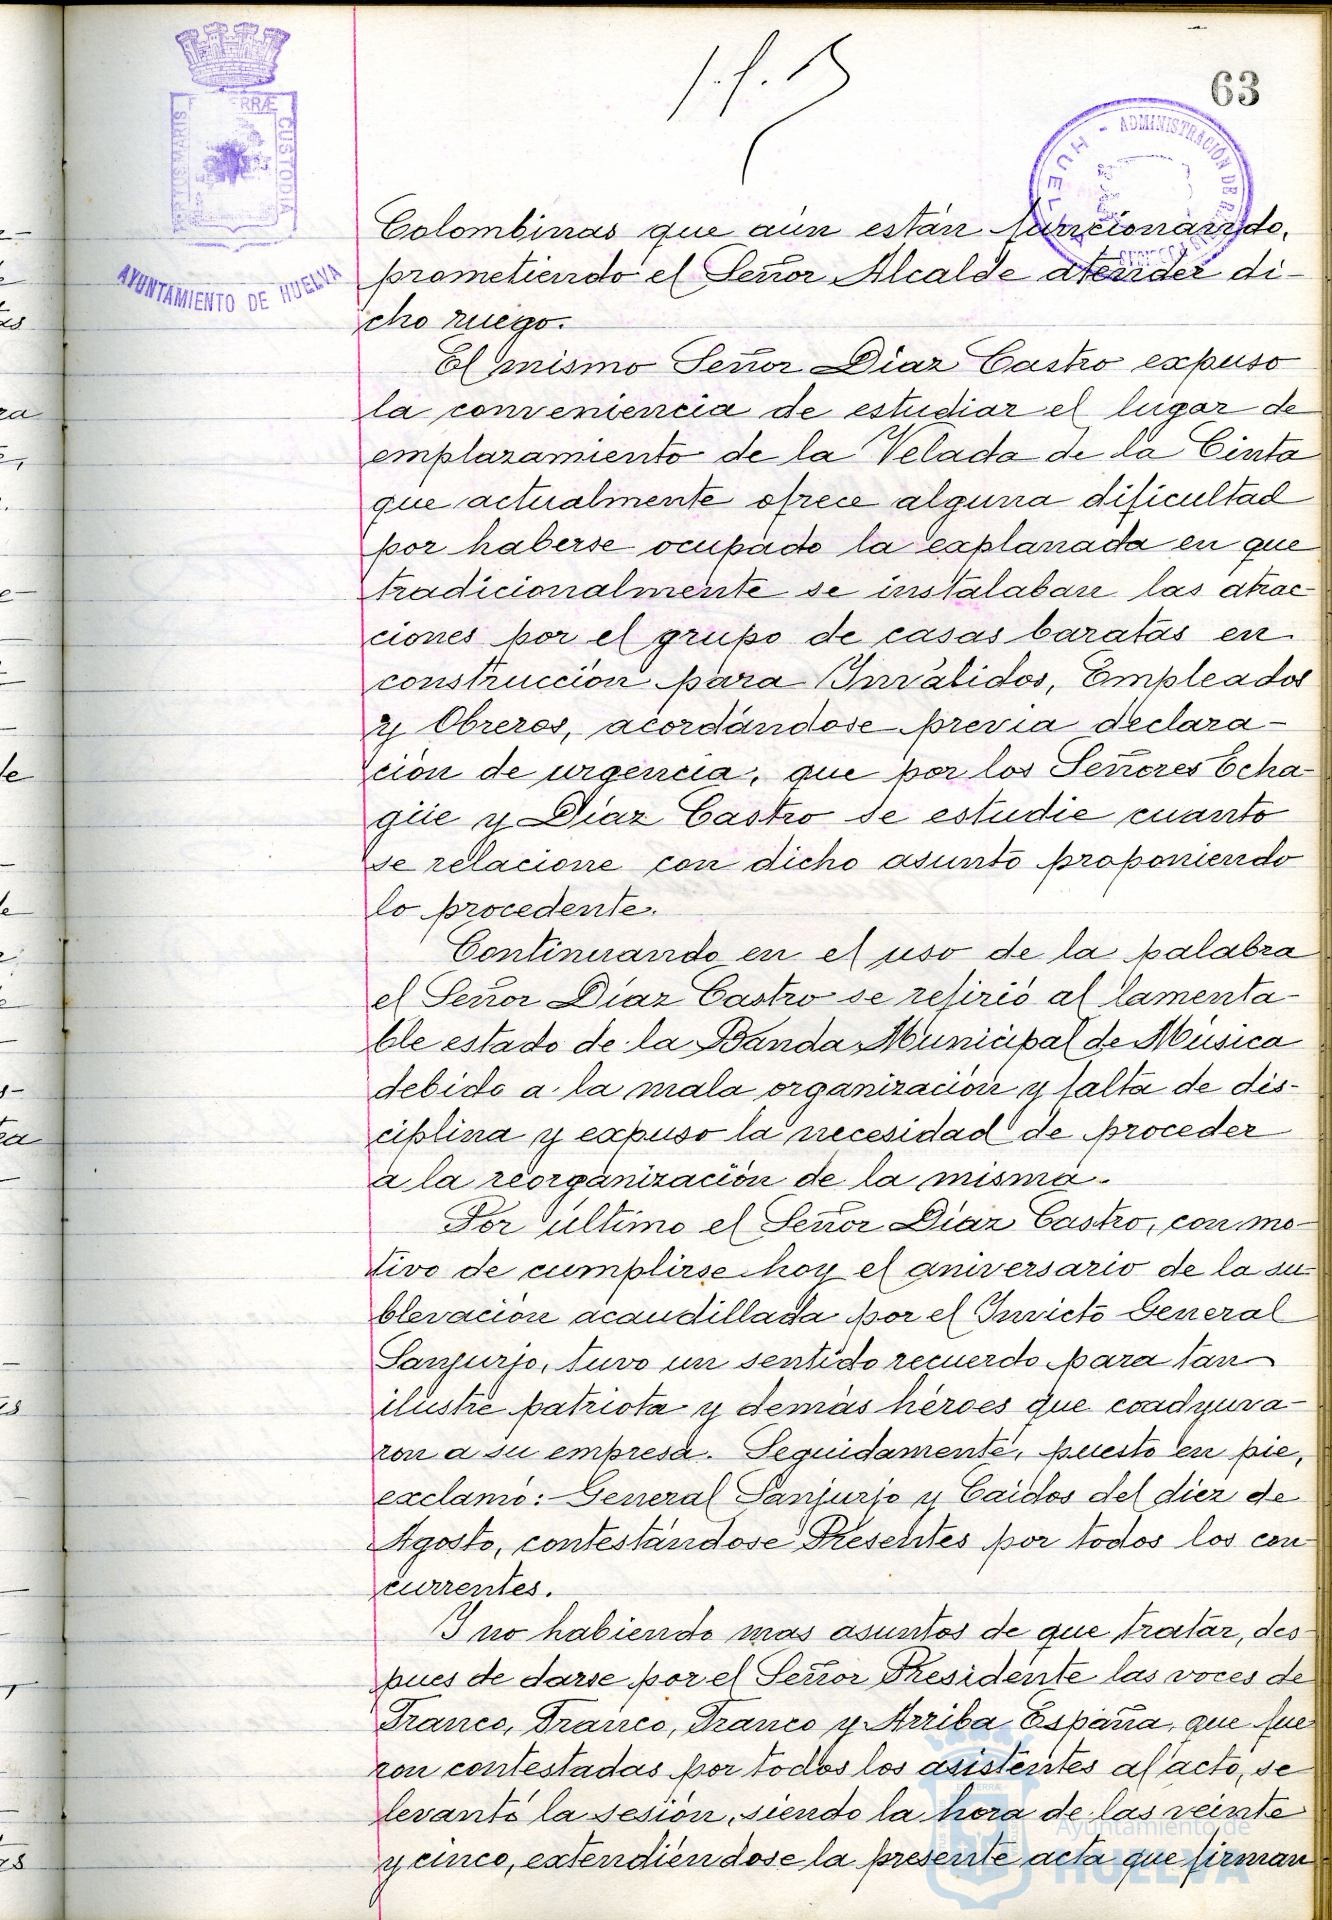 63
PORTUS MARIS ET TERRÆ CUSTODIA
AYUNTAMIENTO DE HUELVA
ADMINISTRACIÓN DE
HUELVA
Colombinas que aún están funcionando,
prometiendo el Señor Alcalde atender di-
cho ruego.
El mismo Señor Díaz Castro expuso
la conveniencia de estudiar el lugar de
emplazamiento de la Velada de la Cinta
que actualmente ofrece alguna dificultad
por haberse ocupado la explanada en que
tradicionalmente se instalaban las atrac-
ciones por el grupo de casas baratas en
construcción para Inválidos, Empleados
y Obreros, acordándose previa declara-
ción de urgencia, que por los Señores Echa-
güe y Díaz Castro se estudie cuanto
se relacione con dicho asunto proponiendo
lo procedente.
Continuando en el uso de la palabra
el Señor Díaz Castro se refirió al lamenta-
ble estado de la Banda Municipal de Música
debido a la mala organización y falta de dis-
ciplina y expuso la necesidad de proceder
a la reorganización de la misma.
Por último el Señor Díaz Castro, con mo-
tivo de cumplirse hoy el aniversario de la su-
blevación acaudillada por el Invicto General
Sanjurjo, tuvo un sentido recuerdo para tan
ilustre patriota y demás héroes que coadyuva-
ron a su empresa. Seguidamente, puesto en pie,
exclamó: General Sanjurjo y Caidos del diez de
Agosto, contestándose Presentes por todos los con-
currentes.
Y no habiendo mas asuntos de que tratar, des-
pues de darse por el Señor Presidente las voces de
Franco, Franco, Franco y Arriba España, que fue-
ron contestadas por todos los asistentes al acto, se
levantó la sesión, siendo la hora de las veinte
y cinco, extendiéndose la presente acta que firman
Ayuntamiento de
HUELVA